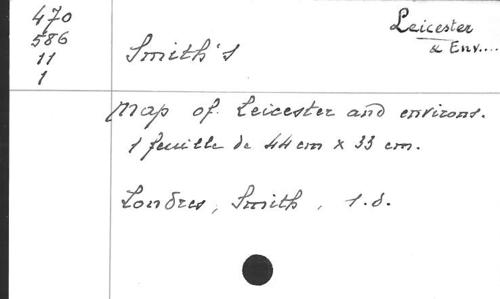 470
586
11
1
Leicester
& Env....
Smith's
Map of Leicester and environs.
1 feuille de 44 cm x 33 cm.
Londres, Smith, s.d.